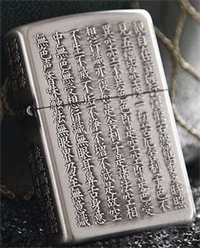 見五蘊皆空度一切苦厄舍利子色不
異空空不異色色即是空空即是色受
想行識亦復如是舍利子是諸法空相
不生不滅不垢不淨不增不減是故空
中無色無受想行識無眼耳鼻舌身意
無色聲香味觸法無眼界乃至無意